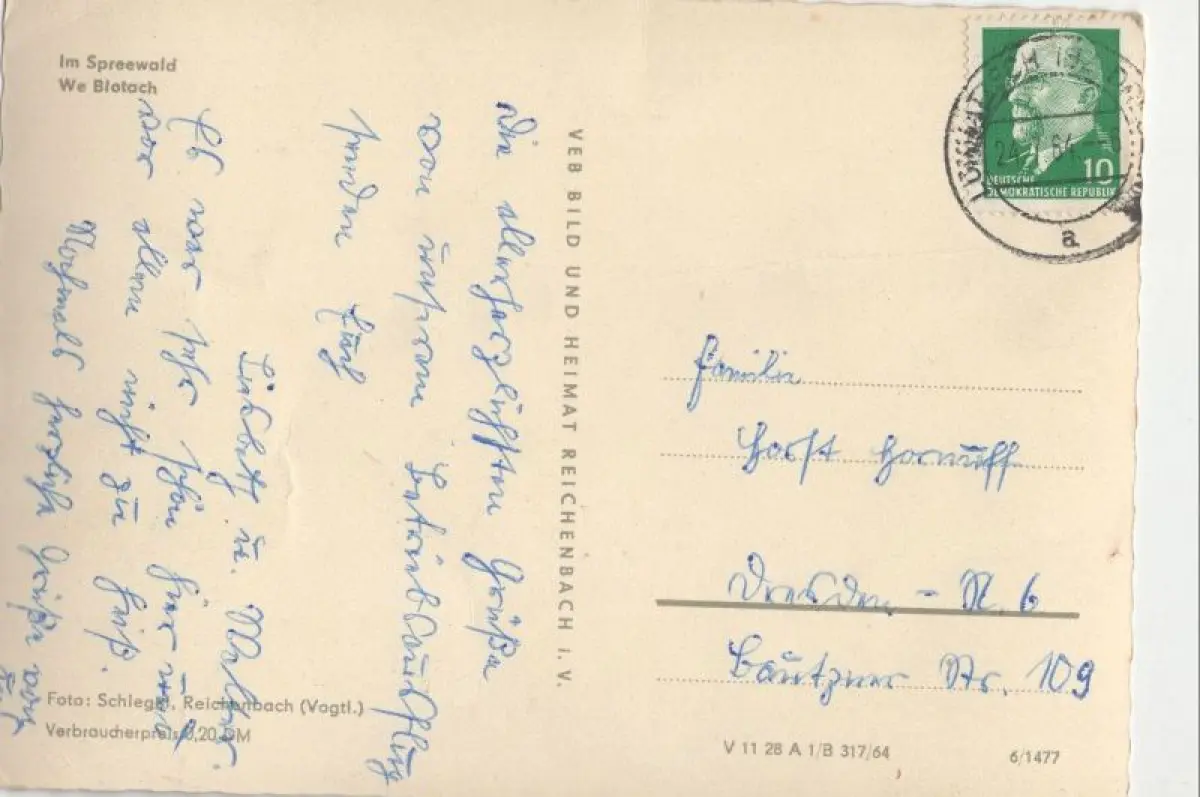 Im Spreewald
We Blotach
Die allerherzlichsten Grüße
von unserem Betriebsausflug
senden Euch
u.
Es war sehr schön hier und
vor allem nicht zu heiß.
Nochmals herzliche Grüße
VEB BILD UND HEIMAT REICHENBACH I. V.
Foto: Schlegel, Reichenbach (Vogtl.)
Verbraucherpreis 0,20 DM
DEUTSCHE
DEMOKRATISCHE REPUBLIK
10
a
Familie
Horst Hornuff
Dresden - N. 6
Bautzner Str. 109
V 11 28 A 1/B 317/64
6/1477